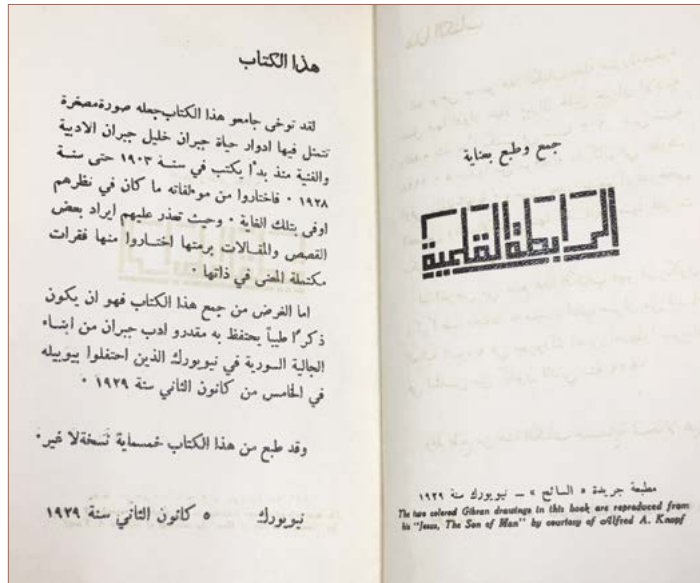 جمع وطبع بعناية
الرابطة القلمية
مطبعة جريدة «السائح» — نيويورك سنة ١٩٢٩
The two colored Gibran drawings in this book are reproduced from
his "Jesus, The Son of Man" by courtesy of Alfred A. Knopf
هذا الكتاب
لقد توخى جامعو هذا الكتاب جعله صورة مصغرة
تتمثل فيها ادوار حياة جبران خليل جبران الادبية
والفنية منذ بدأ يكتب في سنة ١٩٠٣ حتى سنة
١٩٢٨ ٠ فاختاروا من موءلفاته ما كان في نظرهم
اوفى بتلك الغاية ٠ وحيث تعذر عليهم ايراد بعض
القصص والمقالات برمتها اختاروا منها فقرات
مكتملة المعنى في ذاتها ٠
اما الغرض من جمع هذا الكتاب فهو ان يكون
ذكرًا طيباً يحتفظ به مقدرو ادب جبران من ابناء
الجالية السورية في نيويورك الذين احتفلوا بيوبيله
في الخامس من كانون الثاني سنة ١٩٢٩ ٠
وقد طبع من هذا الكتاب خمسماية نسخة لا غير ٠
نيويورك ٥ كانون الثاني سنة ١٩٢٩